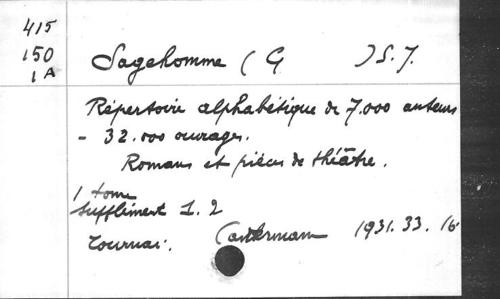 415
150
1 A
Sagehomme ( G ) S. J.
Répertoire alphabétique de 7.000 auteurs
- 32.000 ouvrages.
Romans et pièces de théâtre.
1 tome
Supplément 1. 2
Tournai. Casterman 1931. 33. 16